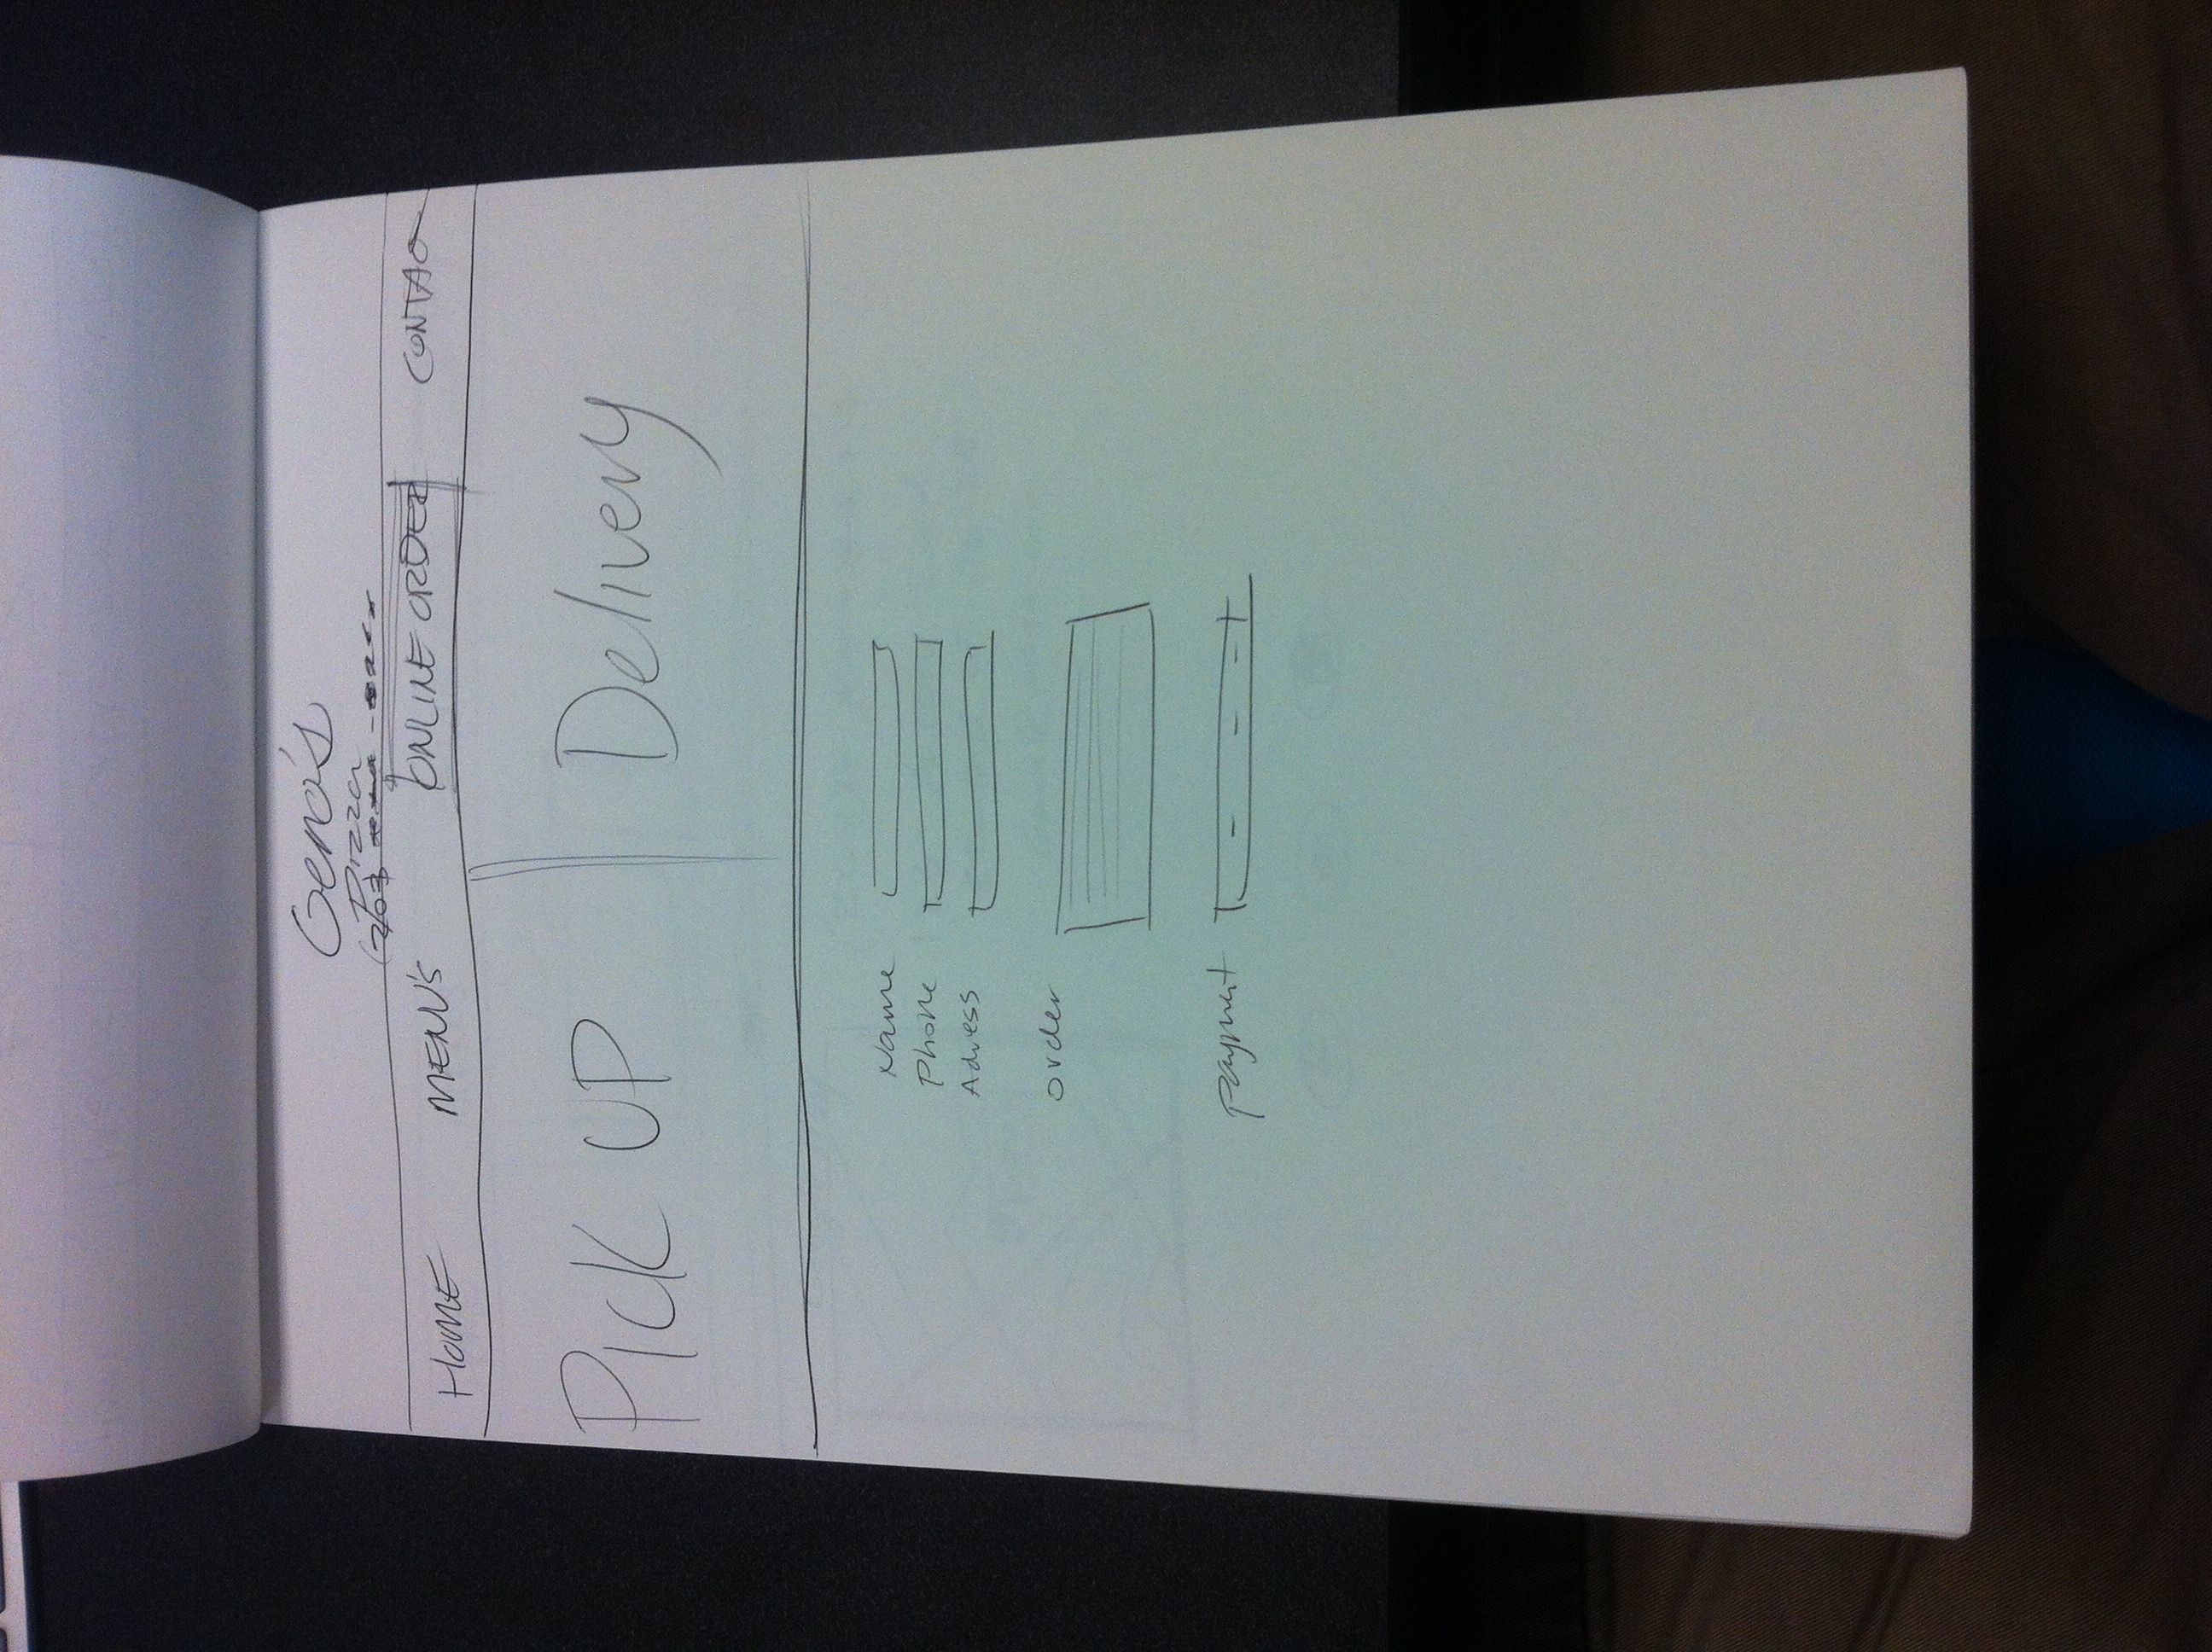 Geno's
Pizza
(203
HOME MENU'S ONLINE ORDER CONTAC
PICK UP Delivery
Name
Phone
Adress
order
payment